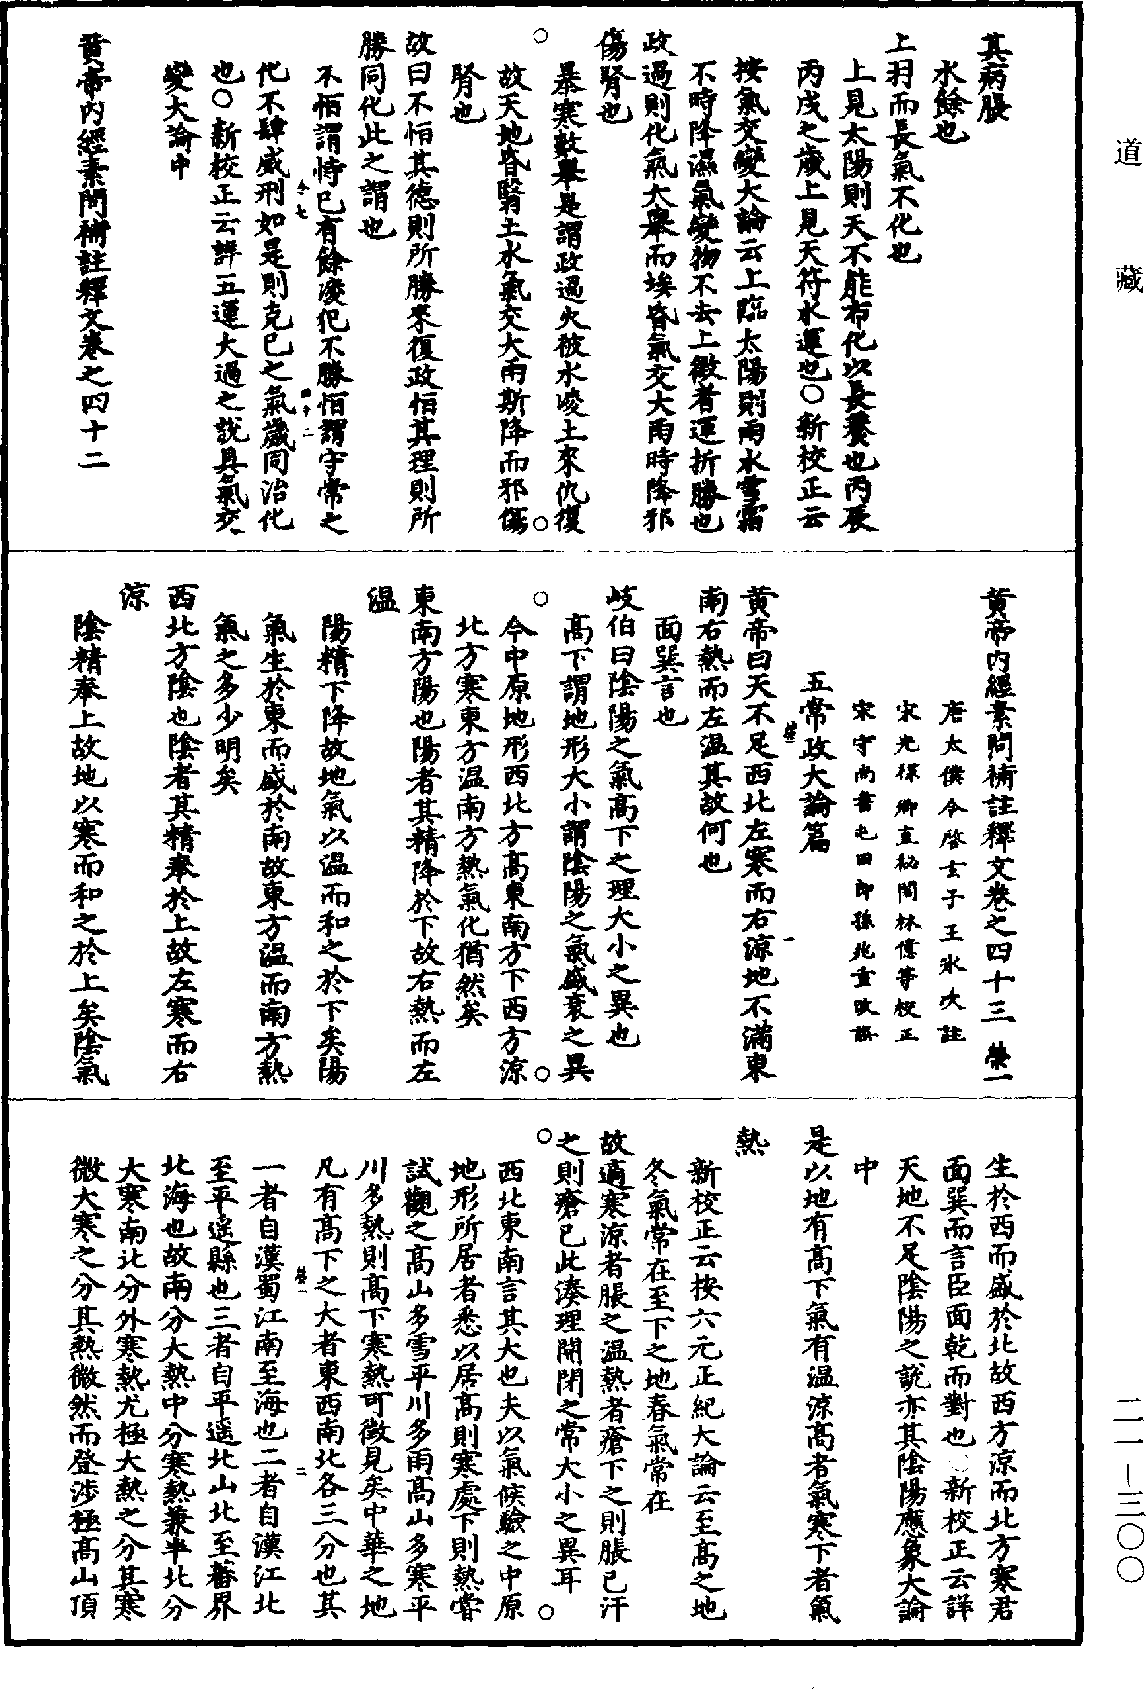 道藏
其病脹
水餘也
上羽而長氣不化也
上見太陽則天不能布化以長養也丙辰
丙戌之歲上見天符水運也○新校正云
按氣交變大論云上臨太陽則雨冰雪霜
不時降濕氣變物不云上徵者運折勝也
政過則化氣大舉而埃昏氣交大雨時降邪
傷腎也
暴寒數舉是謂政過火被水凌土來仇復
故天地昏翳土水氣交大雨斯降而邪傷
腎也
故曰不恒其德則所勝來復政恒其理則所
勝同化此之謂也
不恒謂恃已有餘凌犯不勝恒謂守常之
化不肆威刑如是則克已之氣歲同治化
也○新校正云詳五運太過之說具氣交
變大論中
黄帝内經素問補註釋文卷之四十二
黄帝内經素問補註釋文卷之四十三 榮一
唐太僕令啓玄子王氷次註
宋光祿卿直秘閣林億等校正
宋守尚書屯田郎孫兆重改誤
五常政大論篇
黄帝曰天不足西北左寒而右涼地不滿東
南右熱而左温其故何也
面巽言也
岐伯曰陰陽之氣高下之理大小之異也
高下謂地形大小謂陰陽之氣盛衰之異
今中原地形西北方高東南方下西方涼
北方寒東方温南方熱氣化猶然矣
東南方陽也陽者其精降於下故右熱而左
温
陽精下降故地氣以温而和之於下矣陽
氣生於東而盛於南故東方温而南方熱
氣之多少明矣
西北方陰也陰者其精奉於上故左寒而右
涼
陰精奉上故地以寒而和之於上矣陰氣
生於西而盛於北故西方涼而北方寒君
面巽而言臣面乾而對也○新校正云詳
天地不足陰陽之說亦具陰陽應象大論
中
是以地有高下氣有温涼高者氣寒下者氣
熱
新校正云按六元正紀大論云至高之地
冬氣常在至下之地春氣常在
故適寒涼者脹之温熱者瘡下之則脹已汗
之則瘡已此湊理開閉之常大小之異耳
西北東南言其大也夫以氣候驗之中原
地形所居者悉以居高則寒處下則熱嘗
試觀之高山多雪平川多雨高山多寒平
川多熱則高下寒熱可徵見矣中華之地
凡有高下之大者東西南北各三分也其
一者自漢蜀江南至海也二者自漢江北
至平遥縣也三者自平遥北山北至蕃界
北海也故南分大熱中分寒熱兼半北分
大寒南北分外寒熱尤極大熱之分其寒
微大寒之分其熱微然而登涉極高山頂
二一—三〇〇